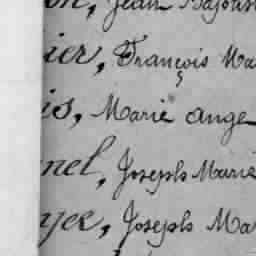 on, Jean Baptis
ier, François Ma
is, Marie ange
nel, Joseph Marie
yer, Joseph Ma